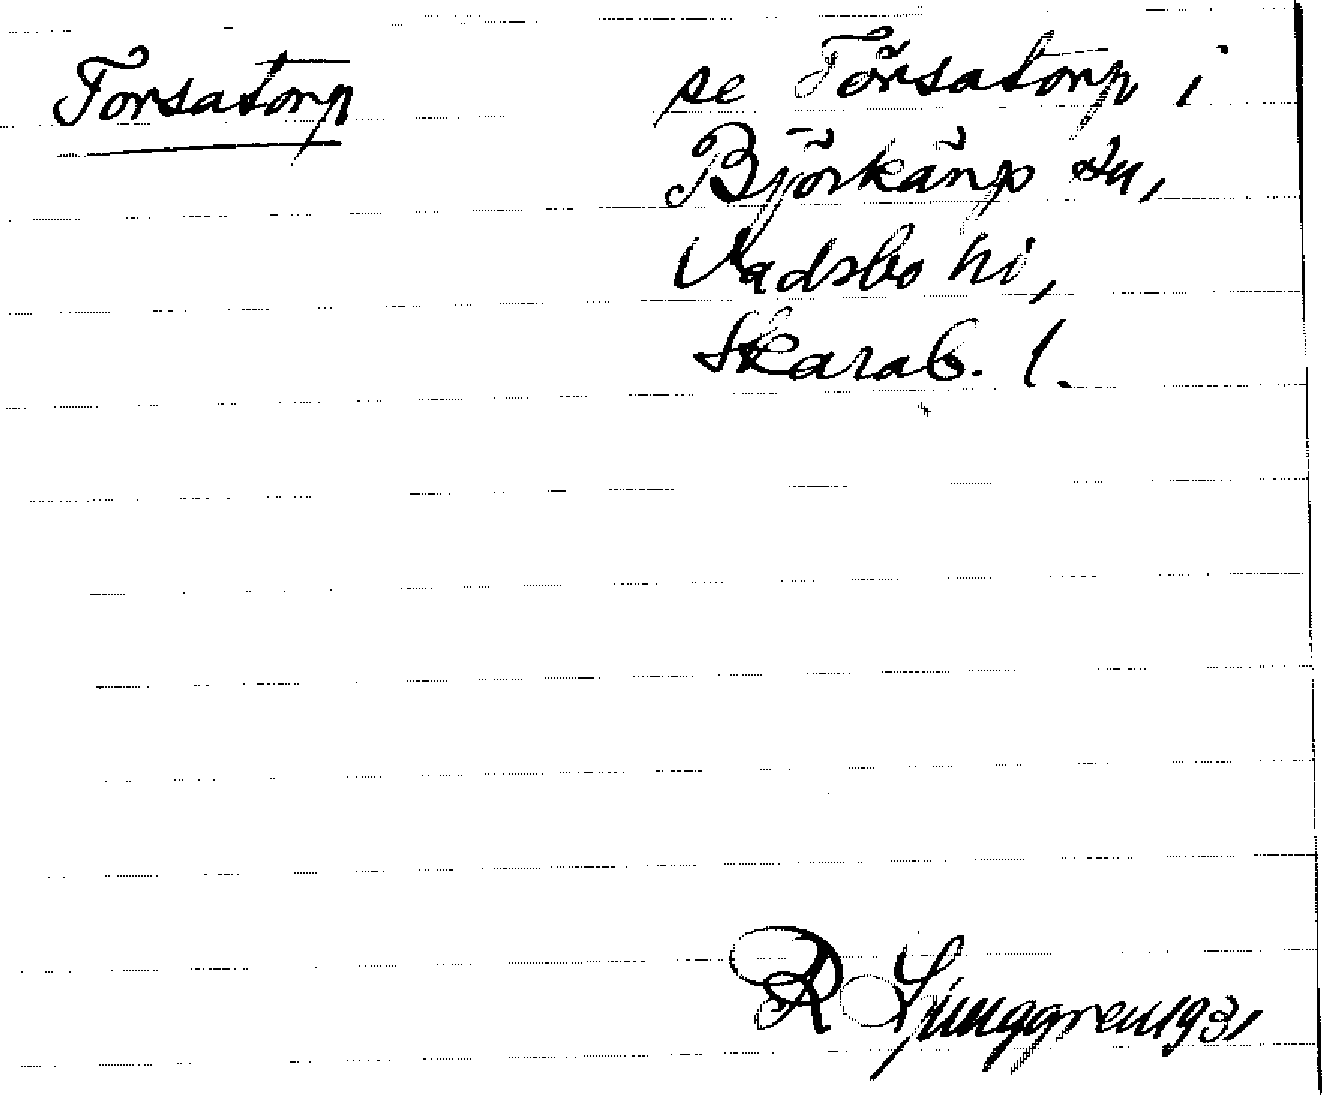 Torsatorp
se Törsatorp i
Björkängs sn,
Vadsbo hd,
Skarab. l.
R Ljunggren 1931